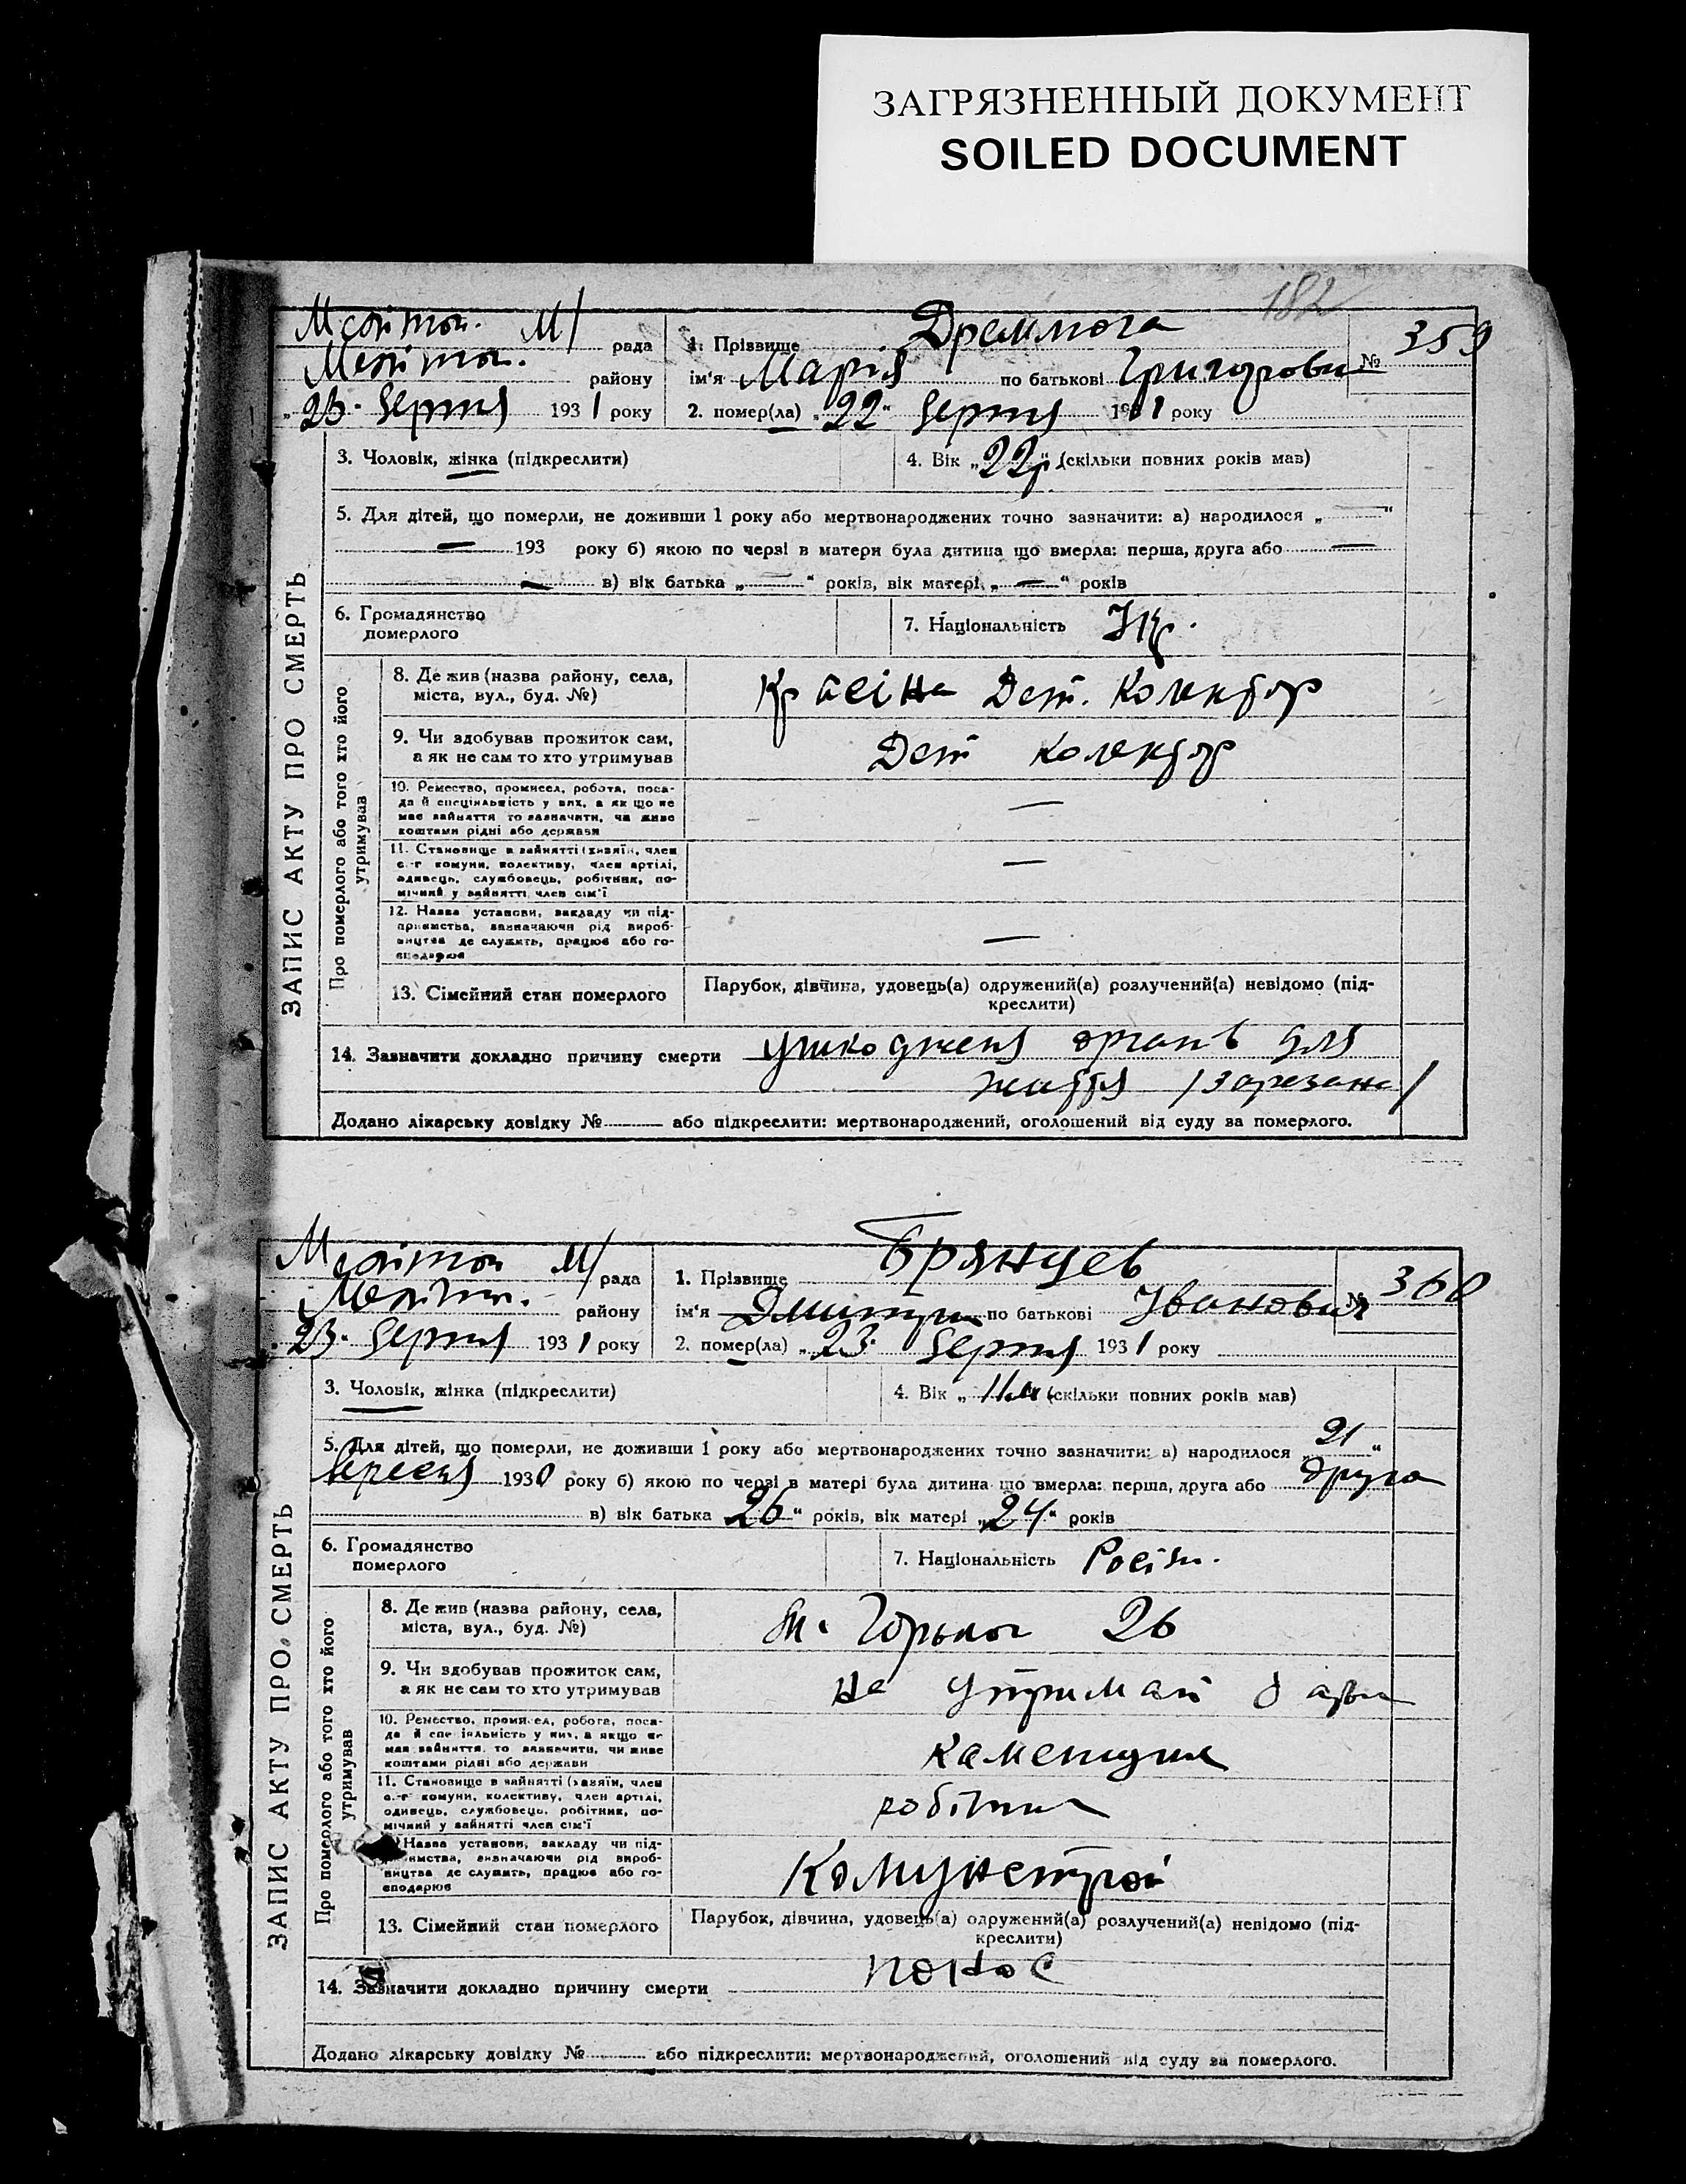 ЗАГРЯЗНЕННЫЙ ДОКУМЕНТ
SOILED DOCUMENT
182
ЗАПИС АКТУ ПРО СМЕРТЬ
М/ рада 1. Прізвище Дремлюга № 359
району ім'я Марія по батькові Григорович
„23" Серпня 1931 року 2. помер(ла) „22" Серпня 1931 року
3. Чоловік, жінка (підкреслити) 4. Вік „22р" (скільки повних років мав)
5. Для дітей, що померли, не доживши 1 року або мертвонароджених точно зазначити: а) народилося „—"
— 193 року б) якою по черзі в матери була дитина що вмерла: перша, друга або —
— в) вік батька „—" років, вік матері „—" років
6. Громадянство померлого 7. Національність Укр.
Про померлого або того хто його утримував
8. Де жив (назва району, села, міста, вул., буд. №) Дет. Колектор
9. Чи здобував прожиток сам, а як не сам то хто утримував Дет колектор
10. Ремество, промисел, робота, посада й спеціяльність у них, а як що не має зайняття то зазначити, чи живе коштами рідні або держави —
11. Становище в зайнятті (хазяїн, член с.-г комуни, колективу, член артілі, одинець, службовець, робітник, помічний у зайнятті член сім'ї —
12. Назва установи, закладу чи підприємства, зазначаючи рід виробництва де служить, працює або господарює —
13. Сімейний стан померлого Парубок, дівчина, удовець(а) одружений(а) розлучений(а) невідомо (підкреслити)
14. Зазначити докладно причину смерти ушкодженя органів для
життя /зарезана/
Додано лікарську довідку № або підкреслити: мертвонароджений, оголошений від суду за померлого.
ЗАПИС АКТУ ПРО СМЕРТЬ
М/ рада 1. Прізвище Брянцев № 360
району ім'я Дмитри по батькові Іванович
„23" Серпня 1931 року 2. помер(ла) „23" Серпня 1931 року
3. Чоловік, жінка (підкреслити) 4. Вік „11м" (скільки повних років мав)
5. Для дітей, що померли, не доживши 1 року або мертвонароджених точно зазначити: а) народилося „21"
Вересня 1930 року б) якою по черзі в матері була дитина що вмерла: перша, друга або друга
в) вік батька „26" років, вік матері „24" років
6. Громадянство померлого 7. Національність Росіян.
Про померлого або того хто його утримував
8. Де жив (назва району, села, міста, вул., буд. №) Горького 26
9. Чи здобував прожиток сам, а як не сам то хто утримував на утриман батьк
10. Ремество, промисел, робота, посада й спеціяльність у них, а якщо не має зайняття, то зазначити, чи живе коштами рідні або держави каменщик
11. Становище в зайнятті (хазяїн, член с.-г комуни, колективу, член артілі, одинець, службовець, робітник, помічний у зайнятті член сім'ї робітник
Назва установи, закладу чи підприємства, зазначаючи рід виробництва де служить, працює або господарює Комунстрой
13. Сімейний стан померлого Парубок, дівчина, удовець(а) одружений(а) розлучений(а) невідомо (підкреслити)
14. Зазначити докладно причину смерти понос
Додано лікарську довідку № або підкреслити: мертвонароджений, оголошений від суду за померлого.